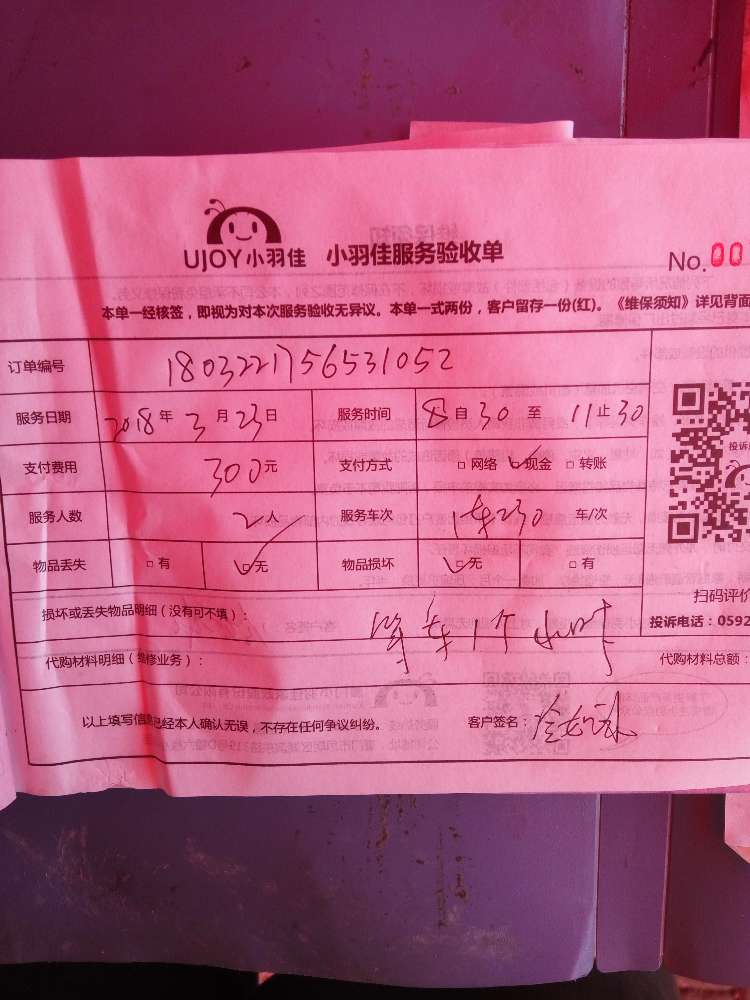 UJOY小羽佳 小羽佳服务验收单
No.00
本单一经核签，即视为对本次服务验收无异议。本单一式两份，客户留存一份(红)。《维保须知》详见背面
订单编号 1803221756531052
服务日期 2018年3月23日 服务时间 8自30至11止30
支付费用 300元 支付方式 □网络 ☑现金 □转账
服务人数 2人 服务车次 1车230 车/次
物品丢失 □有 ☑无 物品损坏 ☑无 □有
扫码评价
损坏或丢失物品明细（没有可不填）： 等车1个小时
投诉电话：0592
代购材料明细（维修业务）： 代购材料总额：
以上填写信息已经本人确认无误，不存在任何争议纠纷。 客户签名：